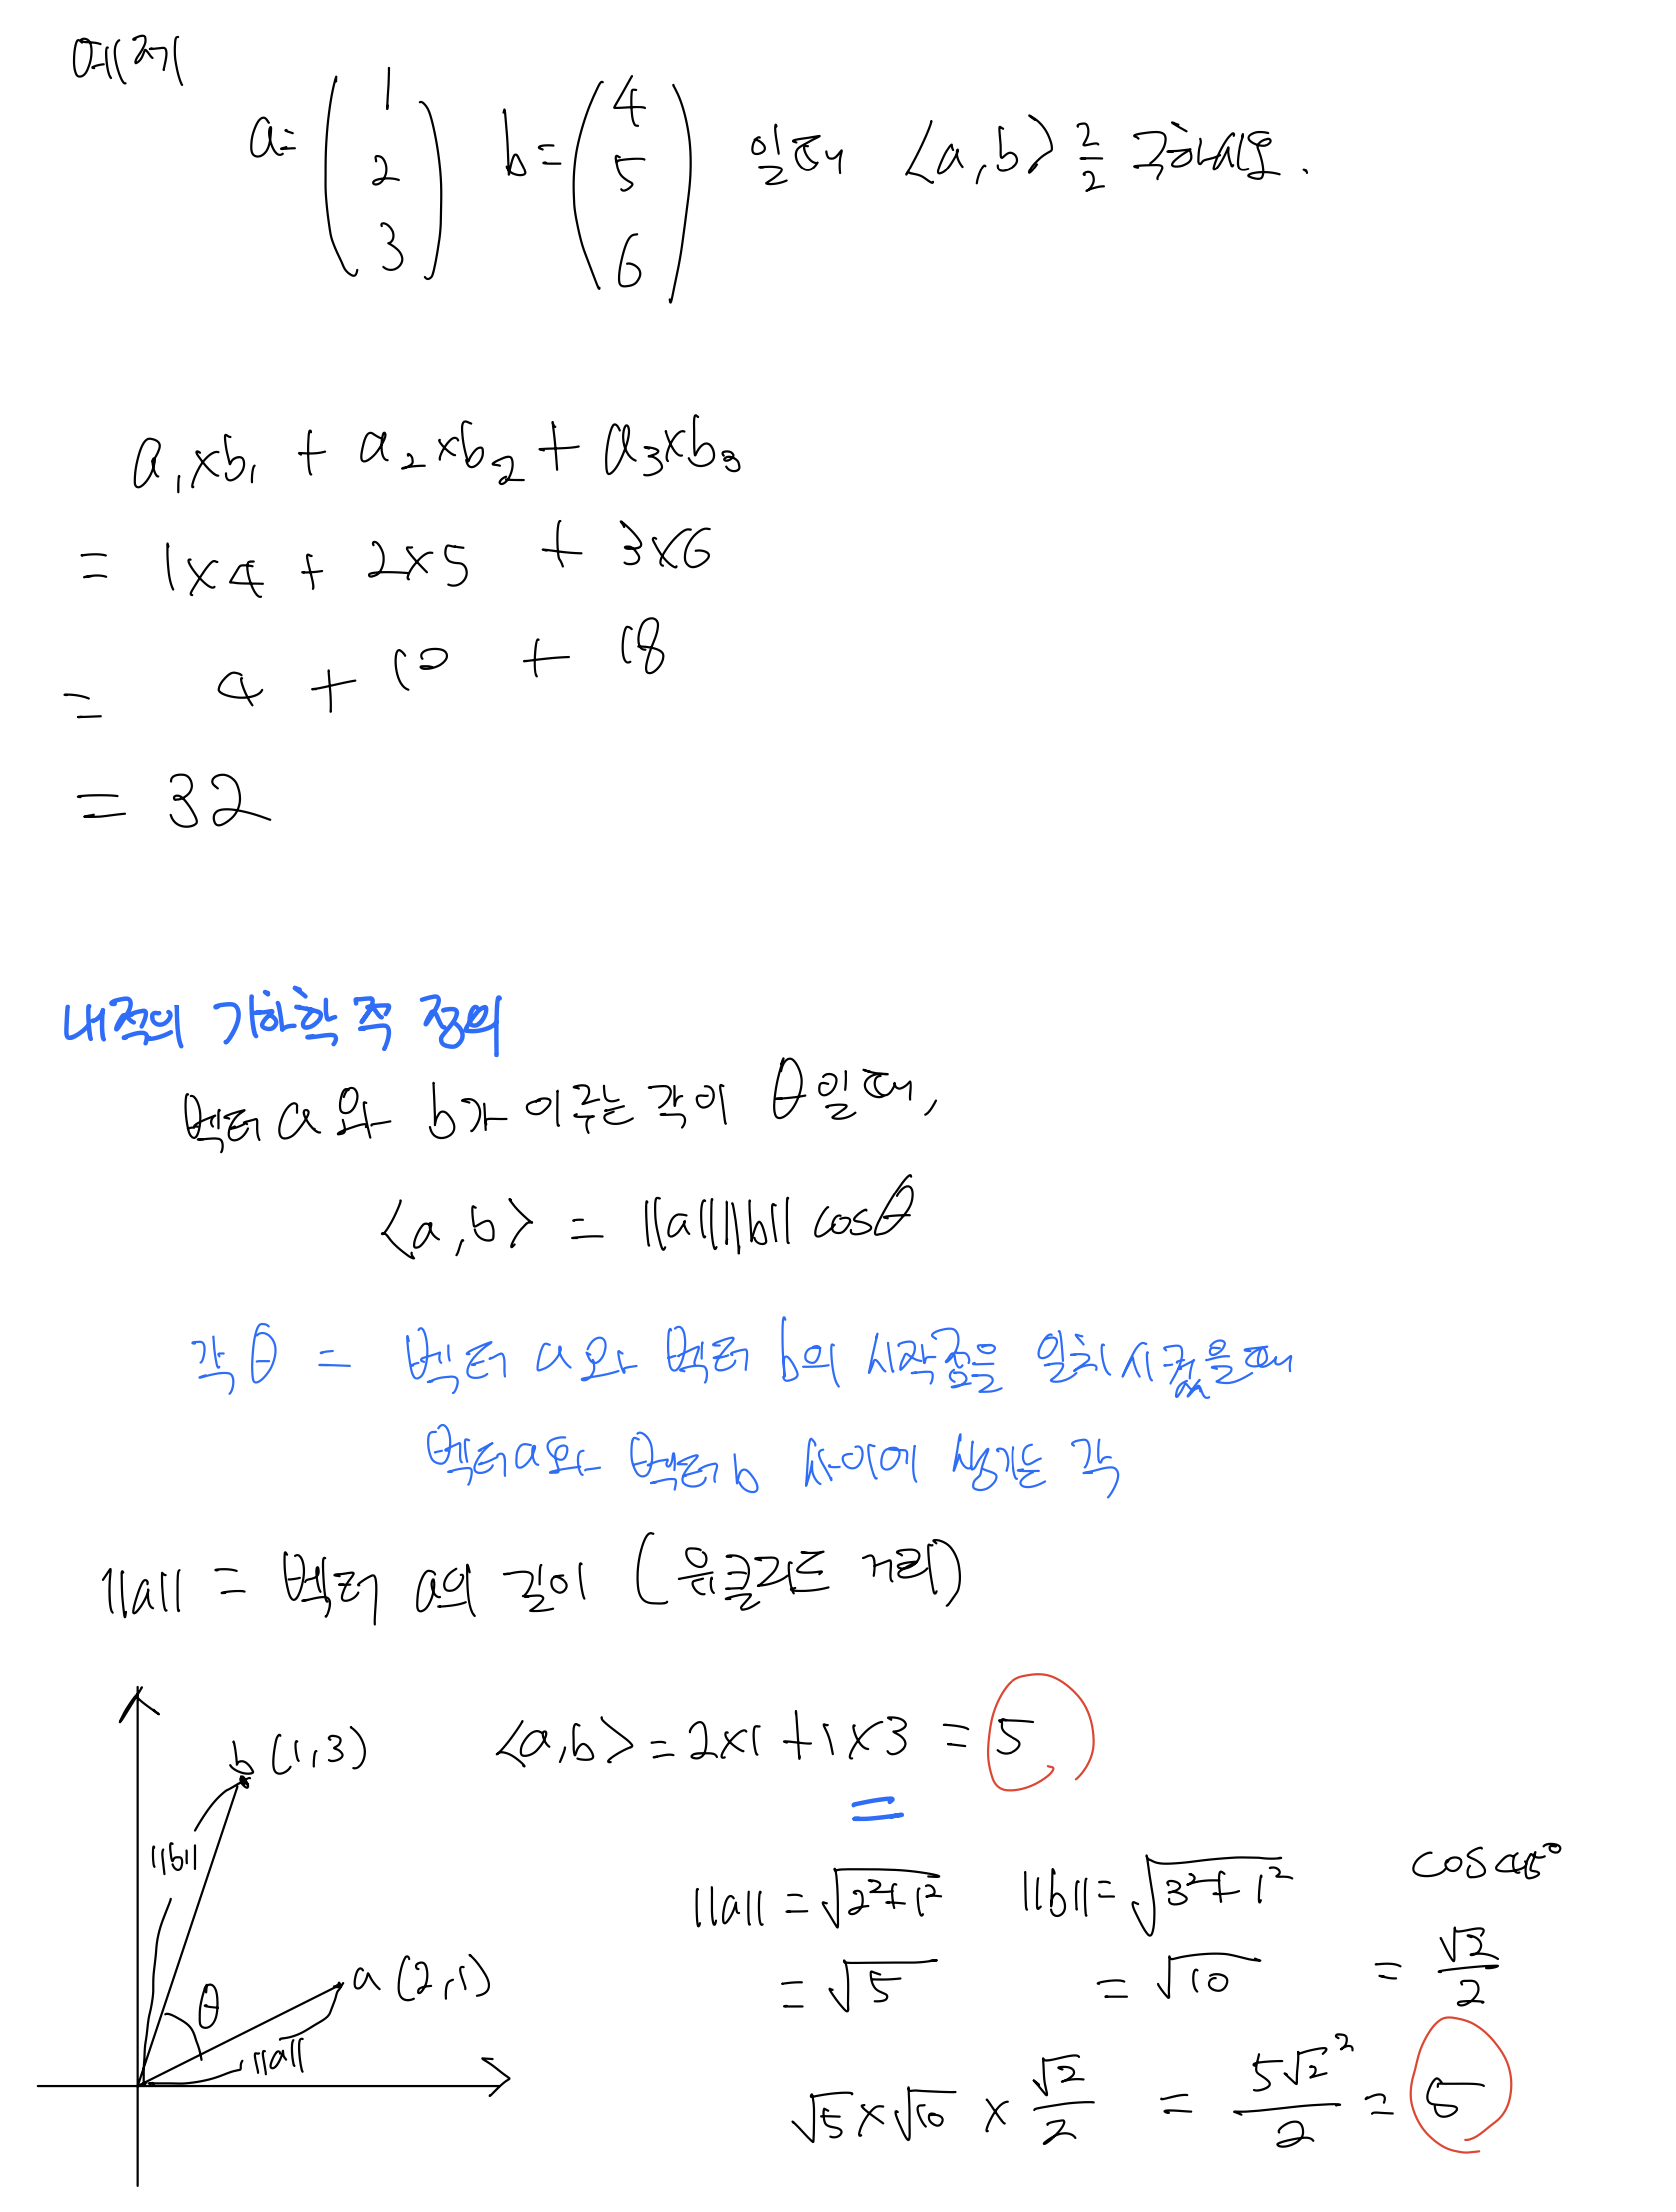 예제
a = (1 2 3) b = (4 5 6) 일때 <a,b>를 구하세요.
a₁×b₁ + a₂×b₂ + a₃×b₃
= 1×4 + 2×5 + 3×6
= 4 + 10 + 18
= 32
내적의 기하학적 정의
벡터 a와 b가 이루는 각이 θ일때,
<a,b> = ||a||||b|| cosθ
각 θ = 벡터 a와 벡터 b의 시작점을 일치시켰을때
벡터a와 벡터b 사이에 생기는 각
||a|| = 벡터 a의 길이 (유클리드 거리)
b (1,3)
||b||
a (2,1)
θ
||a||
<a,b> = 2×1 + 1×3 = 5
=
||a|| = √(2²+1²) ||b|| = √(3²+1²) cos45°
= √5 = √10 = √2/2
√5 × √10 × √2/2 = 5√2²/2 = 5